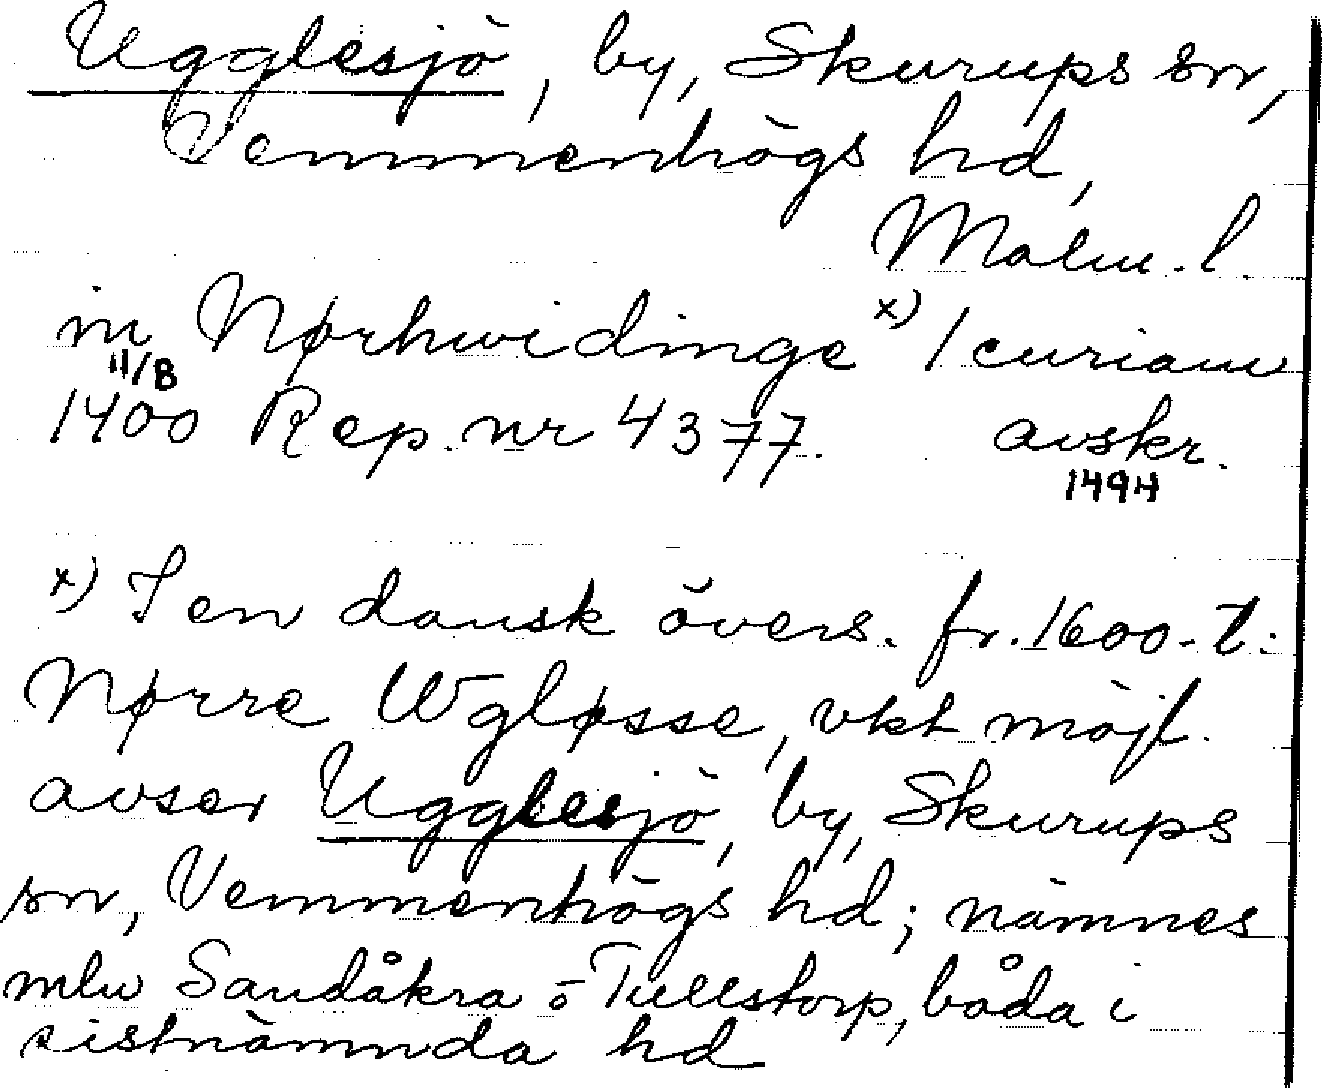 Ugglesjö, by, Skurups sn,
Vemmenhögs hd,
Malm. l.
in Nørhwidinge x) / curiam
11/8
1400 Rep. nr 4377. avskr.
1494
x) I en dansk övers. fr. 1600-t:
Nørre Wgløsse, vkt möjl.
avser Ugglesjö, by, Skurups
sn, Vemmenhögs hd; nämnes
mlw Sandåkra o Tullstorp, båda i
sistnämnda hd